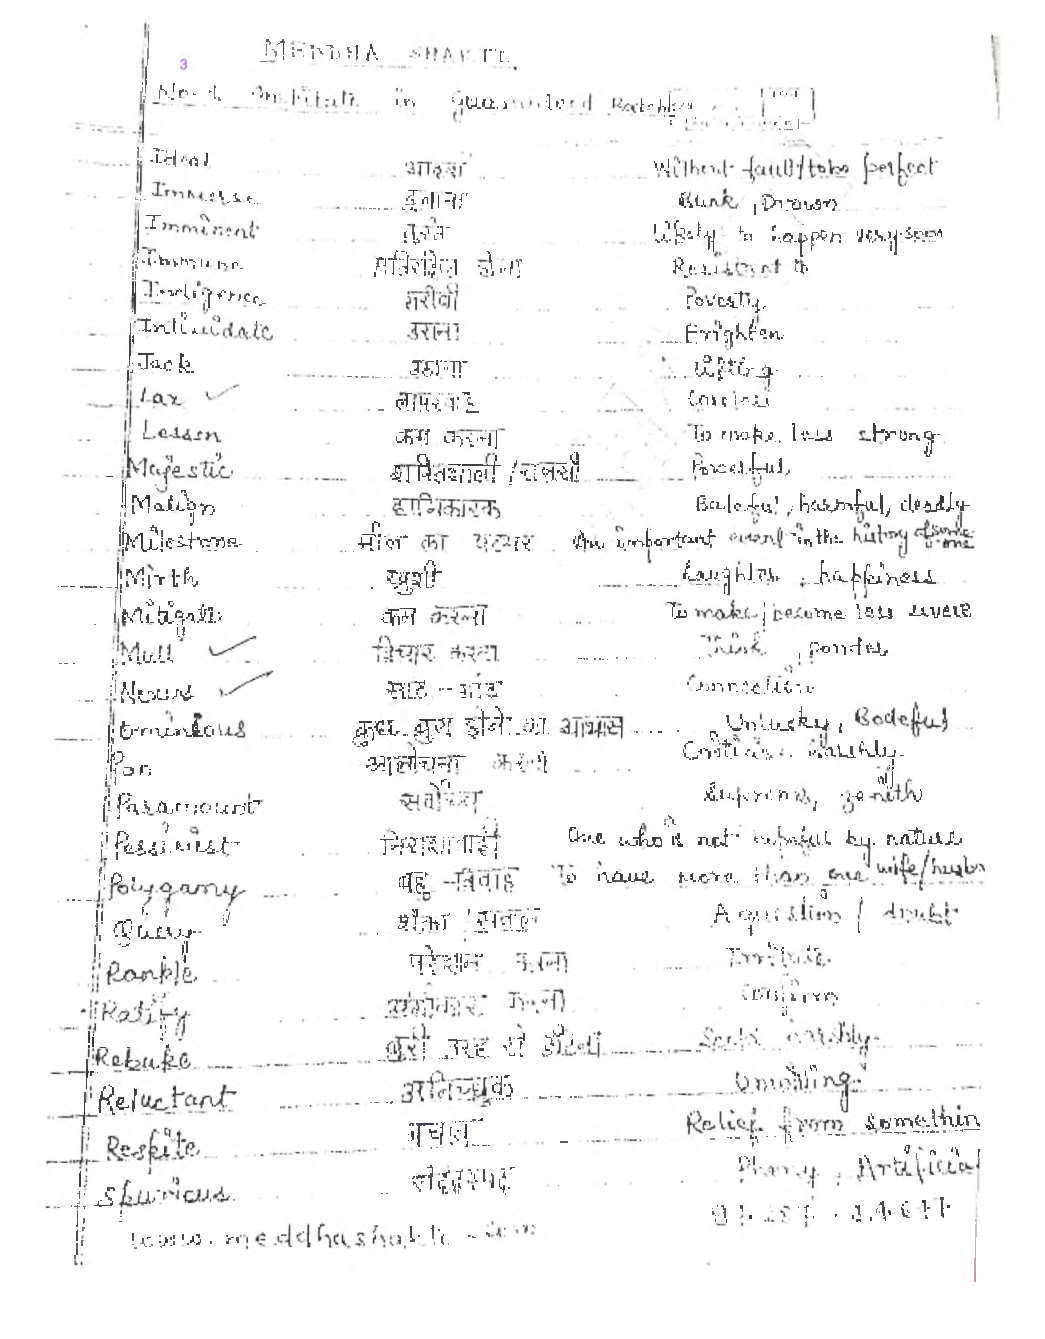 3
MEDDHA SHAKTI.
No-1 Institute in Guaranteed Batches
Ideal आदर्श Without fault/to be perfect
Immerse डुबाना Bunk, Drown
Imminent तुरंत Likely to happen very soon
Immune होना Resistant to
Indigence गरीबी Poverty
Intimidate डराना Frighten
Jack उठाना Lifting
Lax लापरवाह Careless
Lessen कम करना To make less strong
Majestic शक्तिशाली / Forceful
Malign हानिकारक Baleful, harmful, deadly
Milestone मील का पत्थर An important event in the history of some one
Mirth खुशी Laughter, happiness
Mitigate कम करना To make/become less severe
Mull विचार करना Think, ponder
Nexus साठ-गांठ Connection
Ominious कुछ बुरा होने का आभास Unlusky, Bodeful
Pan आलोचना करना Criticise harshly
Paramount सर्वोच्च Supreme, zenith
Pessimist निराशावादी One who is not hopeful by nature
Polygamy बहु-विवाह To have more than one wife/husbn
Query शंका/सवाल A question / doubt
Rankle परेशान करना Irritate
Ratify अंगीकार करना Confirm
Rebuke बुरी तरह से डाँटना Scold harshly
Reluctant अनिच्छुक Unwilling
Respite बचाव Relief from somethin
Spurious संदेहास्पद Phony, Artificial
www.meddhashakti.com